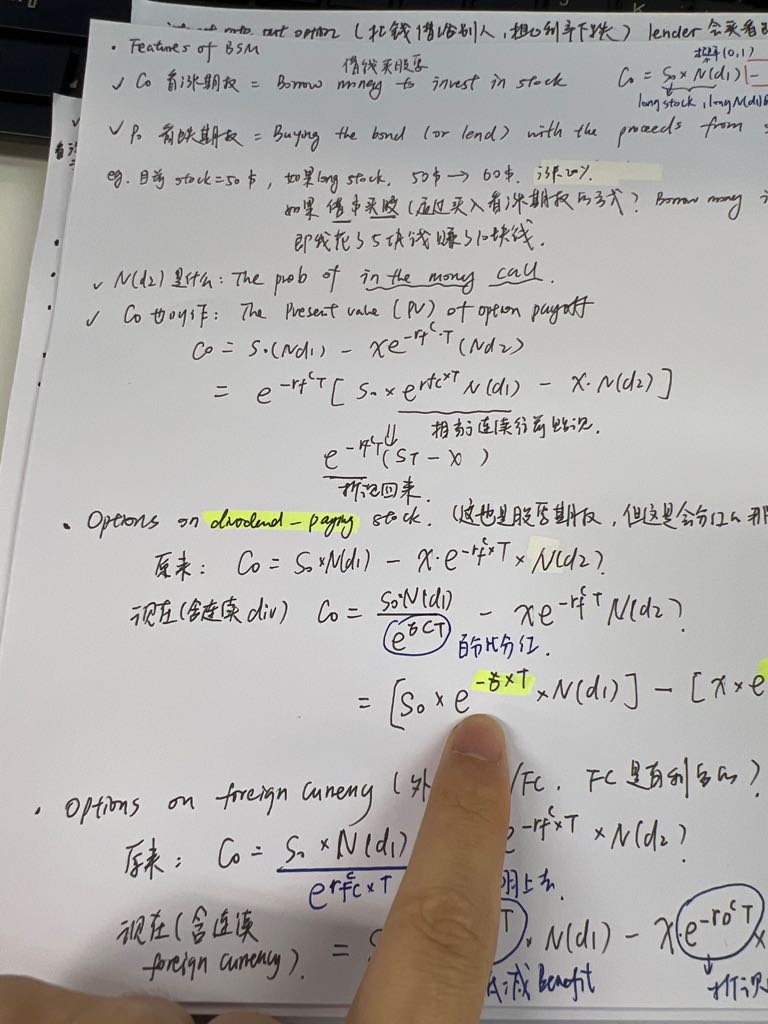 option (把钱借给别人, 担心利率下跌) lender 会买看
• Features of BSM
借钱买股票
✓ C0 看涨期权 = Borrow money to invest in stock
C0 = S0 × N(d1) -
(0,1)
long stock, long N(d1)
✓ P0 看跌期权 = Buying the bond (or lend) with the proceeds from
eg. 目前 stock = 50$, 如果 long stock, 50$ → 60$. 涨20%.
如果借币买股 (通过买入看涨期权的方式? Borrow money
即我花了5块钱赚了10块钱.
✓ N(d2)是什么: The prob of in the money call.
✓ C0 也叫作: The Present value (PV) of option payoff
C0 = S0(Nd1) - Xe^-rf^c·T (Nd2)
= e^-rf^cT [S0 × e^rfc×T N(d1) - X·N(d2)]
相当于连续往前
e^-rf^cT (ST - X)
折现回来.
• Options on dividend-paying stock. (这也是股票期权, 但这是会分红的那
原来: C0 = S0 × N(d1) - X·e^-rf^c×T × N(d2)
现在(含连续div) C0 = S0·N(d1) / e^δCT - Xe^-rf^cT N(d2)
百分比分红.
= [S0 × e^-δ×T × N(d1)] - [X × e
• Options on foreign cureny (外 /FC. FC是有利息的)
原来: C0 = S0 × N(d1) / e^rFC^c×T e^-rf^c×T × N(d2)
现在(含连续
foreign currency)
= × N(d1) - X·e^-rD^cT ×
减 Benefit
折现